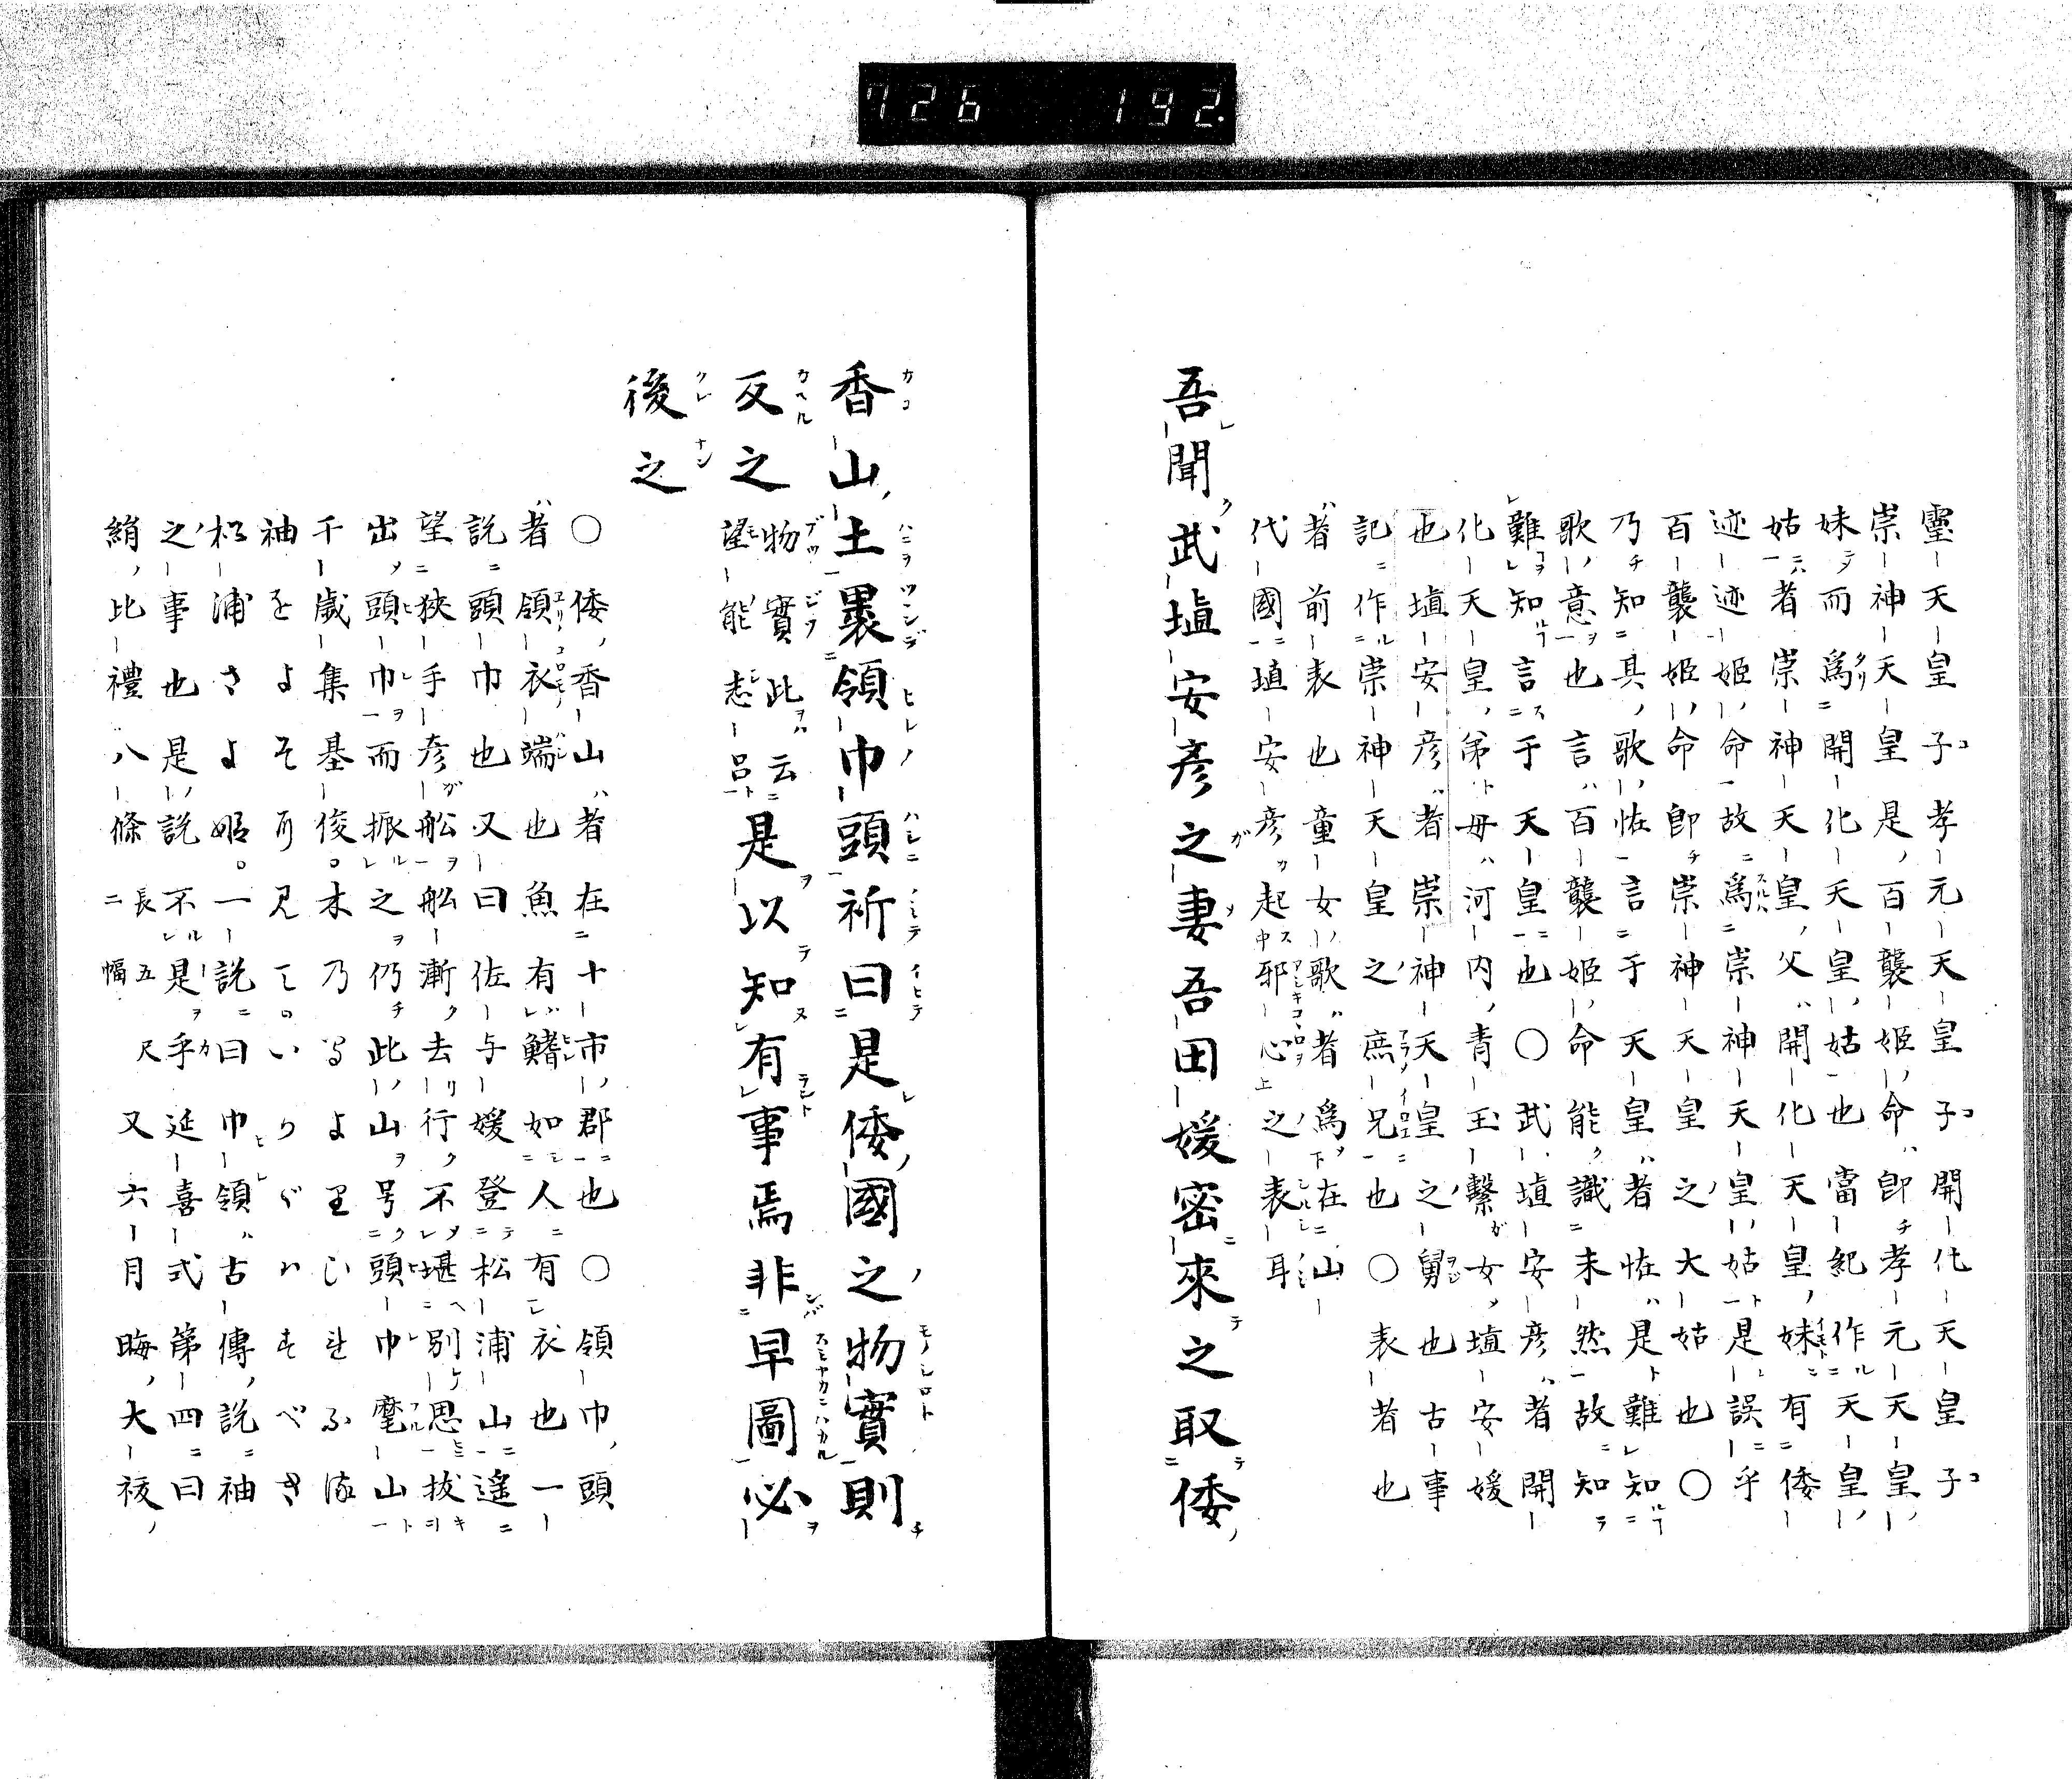 726 192.
靈天皇子孝元天皇子開化天皇子
崇神天皇是百襲姬命即孝元天皇
妹而爲開化天皇姑也當紀作天皇
姑者崇神天皇父開化天皇妹有倭
迹迹姬命故爲崇神天皇姑是誤乎
百襲姬命即崇神天皇之大姑也○
乃知其歌恠言于天皇者恠是難知
歌意也言百襲姬命能識未然故知
難知言于天皇也○武埴安彦者開
化天皇弟母河内青玉繋女埴安媛
也埴安彦者崇神天皇之舅也古事
記作崇神天皇之庶兄也○表者也
者前表也童女歌者爲在山
代國埴安彦起邪心之表耳
吾聞武埴安彦之妻吾田媛密來之取倭
香山土裹領巾頭祈曰是倭國之物實則
反之物實此云望能志呂是以知有事焉非早圖必
後之
○倭香山者在十市郡也○領巾頭
者領衣端也魚有鰭如人有衣也一
説頭巾也又曰佐与媛登松浦山遥
望狹手彦船船漸去行不堪別思拔
出頭巾而振之仍此山号頭巾麾山
千歳集基俊
袖を
松浦さよ姬一説曰巾領古傳説袖
之事也是説不是乎延喜式第四曰
絹比禮八條長五尺二幅又六月晦大祓